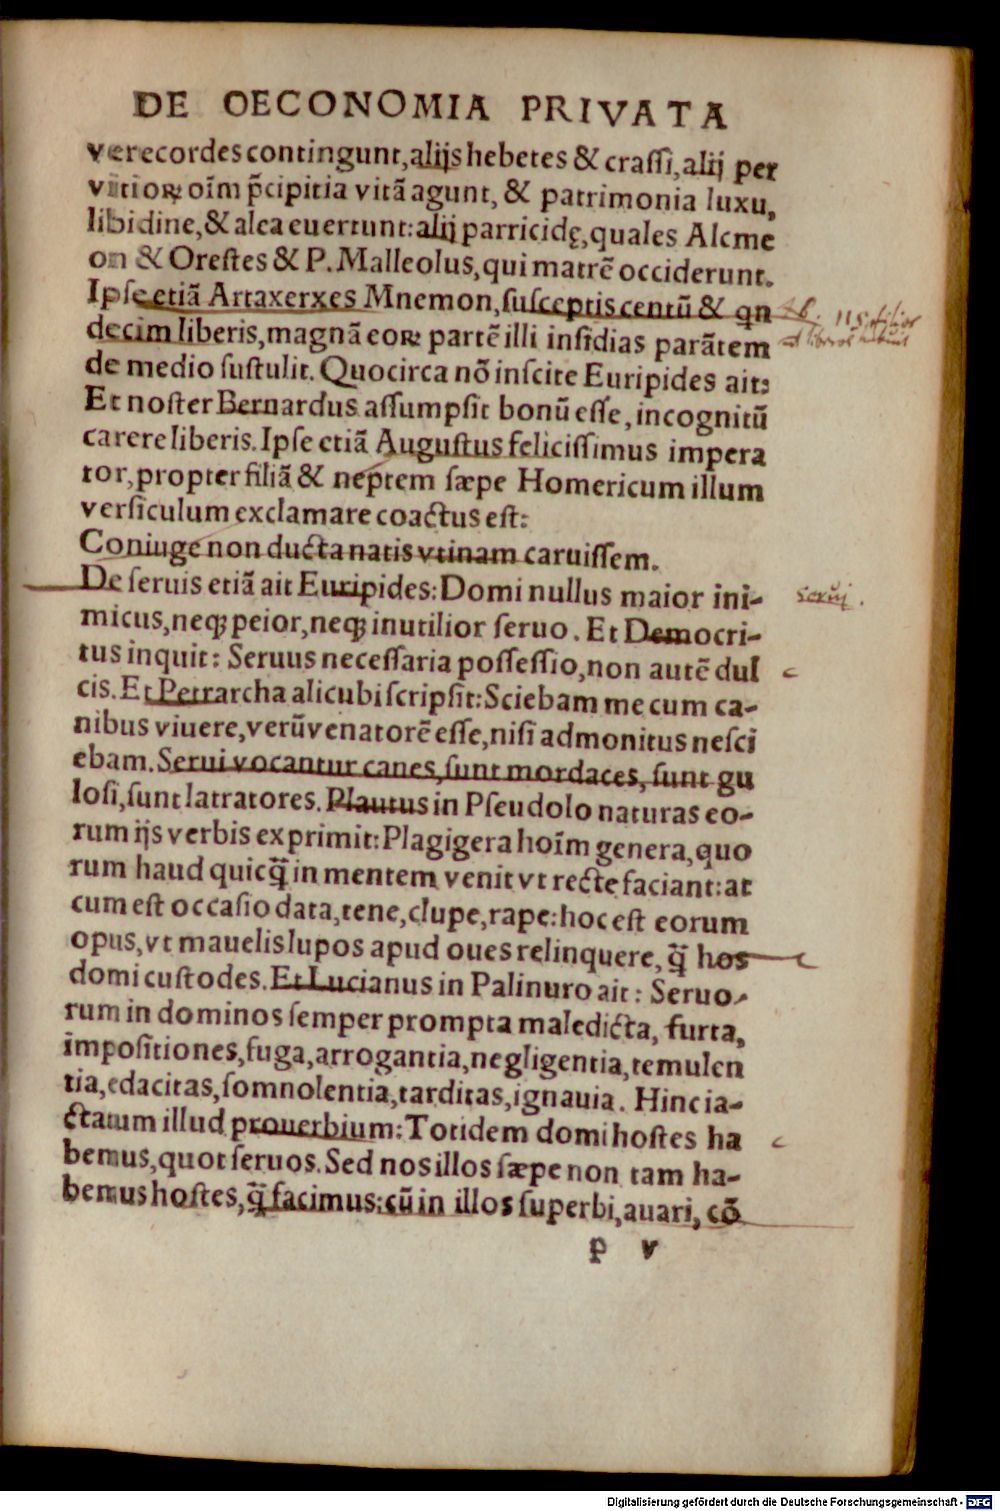 DE OECONOMIA PRIVATA
verecordes contingunt, alijs hebetes & crassi, alij per
vitioꝝ oīm p̄cipitia vitā agunt, & patrimonia luxu,
libidine, & alea euertunt: alij parricidę, quales Alcme
on & Orestes & P. Malleolus, qui matrē occiderunt.
Ipse etiā Artaxerxes Mnemon, susceptis centū & qn
decim liberis, magnā eoꝝ partē illi insidias parātem
de medio sustulit. Quocirca nō inscite Euripides ait:
Et noster Bernardus assumpsit bonū esse, incognitū
carere liberis. Ipse etiā Augustus felicissimus impera
tor, propter filiā & neptem sæpe Homericum illum
versiculum exclamare coactus est:
Coniuge non ducta natis vtinam caruissem.
De seruis etiā ait Euripides: Domi nullus maior ini-
micus, neqꝫ peior, neqꝫ inutilior seruo. Et Democri-
tus inquit: Seruus necessaria possessio, non autē dul
cis. Et Petrarcha alicubi scripsit: Sciebam me cum ca-
nibus viuere, verū venatorē esse, nisi admonitus nesci
ebam. Serui vocantur canes, sunt mordaces, sunt gu
losi, sunt latratores. Plautus in Pseudolo naturas eo-
rum ijs verbis exprimit: Plagigera hoīm genera, quo
rum haud quicq̄ in mentem venit vt recte faciant: at
cum est occasio data, tene, clupe, rape: hoc est eorum
opus, vt mauelis lupos apud oues relinquere, q̄ hos
domi custodes. Et Lucianus in Palinuro ait: Seruo-
rum in dominos semper prompta maledicta, furta,
impositiones, fuga, arrogantia, negligentia, temulen
tia, edacitas, somnolentia, tarditas, ignauia. Hinc ia-
ctatum illud prouerbium: Totidem domi hostes ha
bemus, quot seruos. Sed nos illos sæpe non tam ha-
bemus hostes, q̄ facimus: cū in illos superbi, auari, cō
p v
115 filios
liberos habuit
serui.
Digitalisierung gefördert durch die Deutsche Forschungsgemeinschaft - DFG